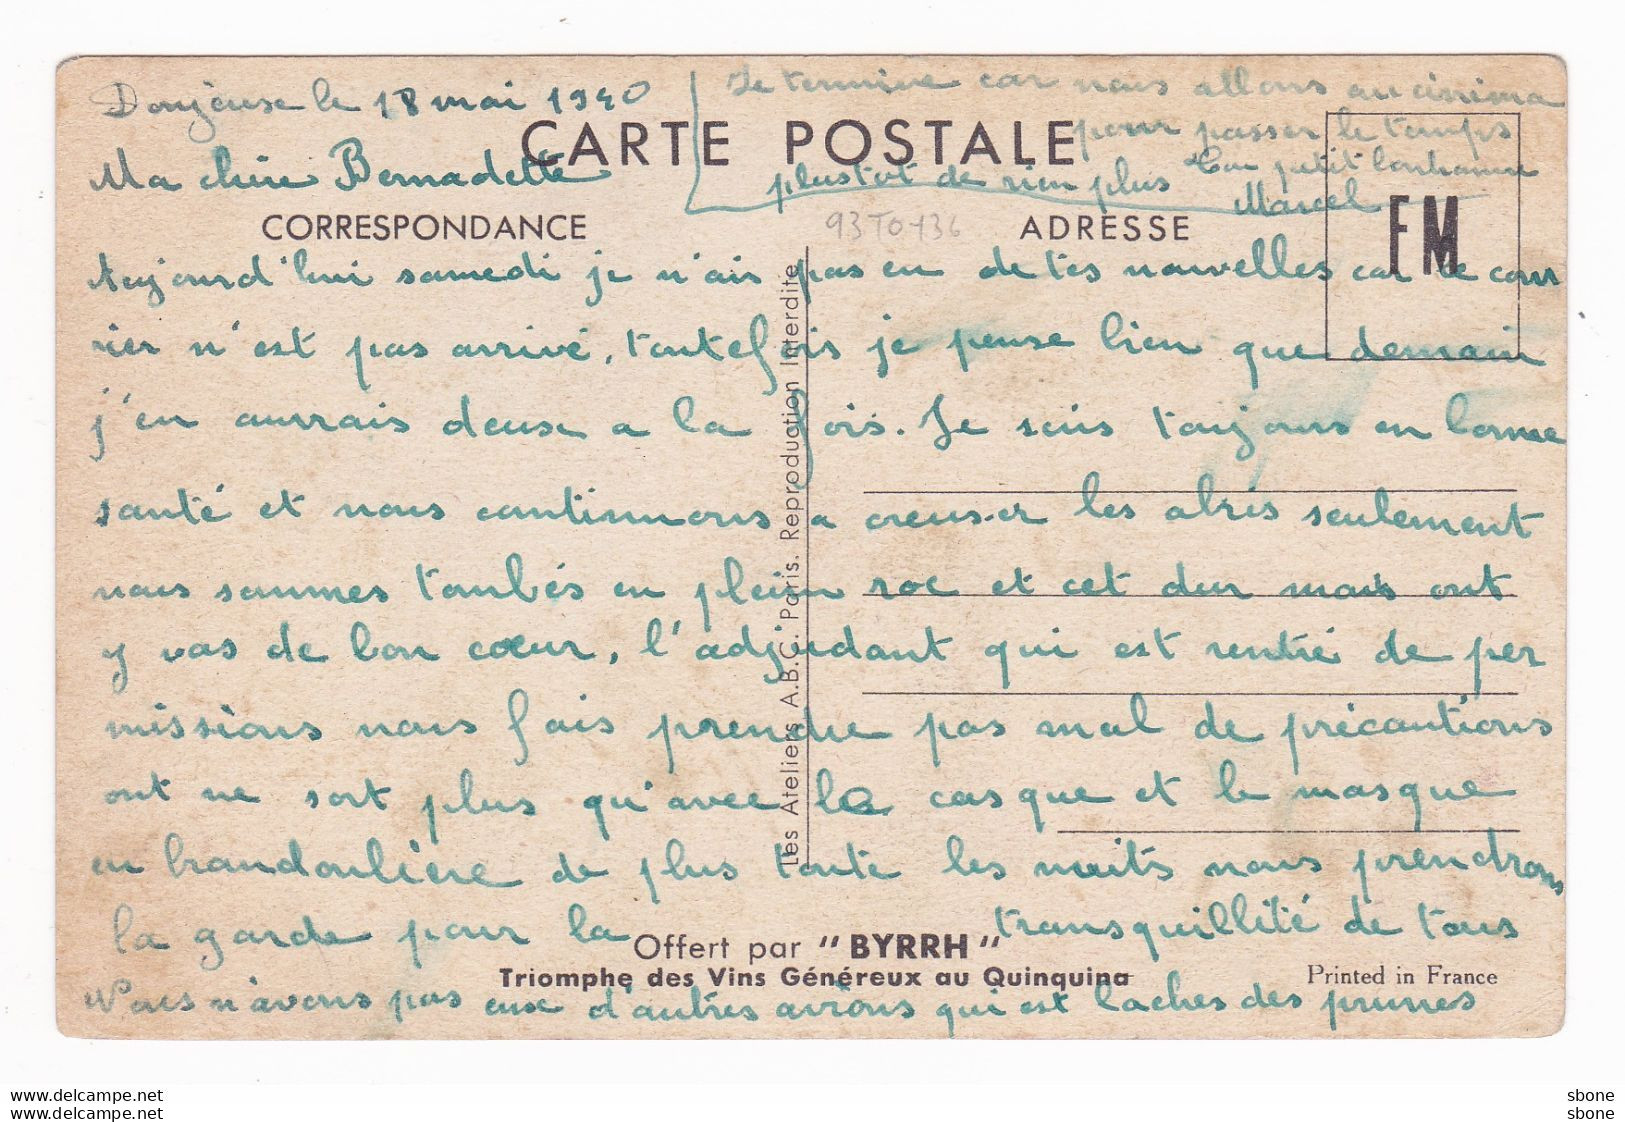 Donjeuse le 18 mai 1940
Ma chère Bernadette
CARTE POSTALE
CORRESPONDANCE
ADRESSE
FM
93TO136
Aujourd'hui samedi je n'ais pas eu de tes nouvelles car le cour
rier n'est pas arrivé, toutefois je pense bien que demain
j'en aurrais deux a la fois. Je suis toujours en bonne
santé et nous continuons a creuser les abris seulement
nous sommes tombés en plein roc et cet dur mais ont
y vas de bon cœur, l'adjudant qui est rentré de per
missions nous fais prendre pas mal de précautions
ont ne sort plus qu'avec le casque et le masque
en brandoulière de plus toute les nuits nous prendrons
la garde pour la transquillité de tous
Nous n'avons pas eux d'autres avions qui est laches des prunes
Je termine car nous allons au cinéma
pour passer le temps
plustot de rien plus
Ton petit bonhomme
Marcel
Les Ateliers A.B.C. Paris. Reproduction Interdite
Offert par "BYRRH"
Triomphe des Vins Généreux au Quinquina
Printed in France
www.delcampe.net
www.delcampe.net
sbone
sbone